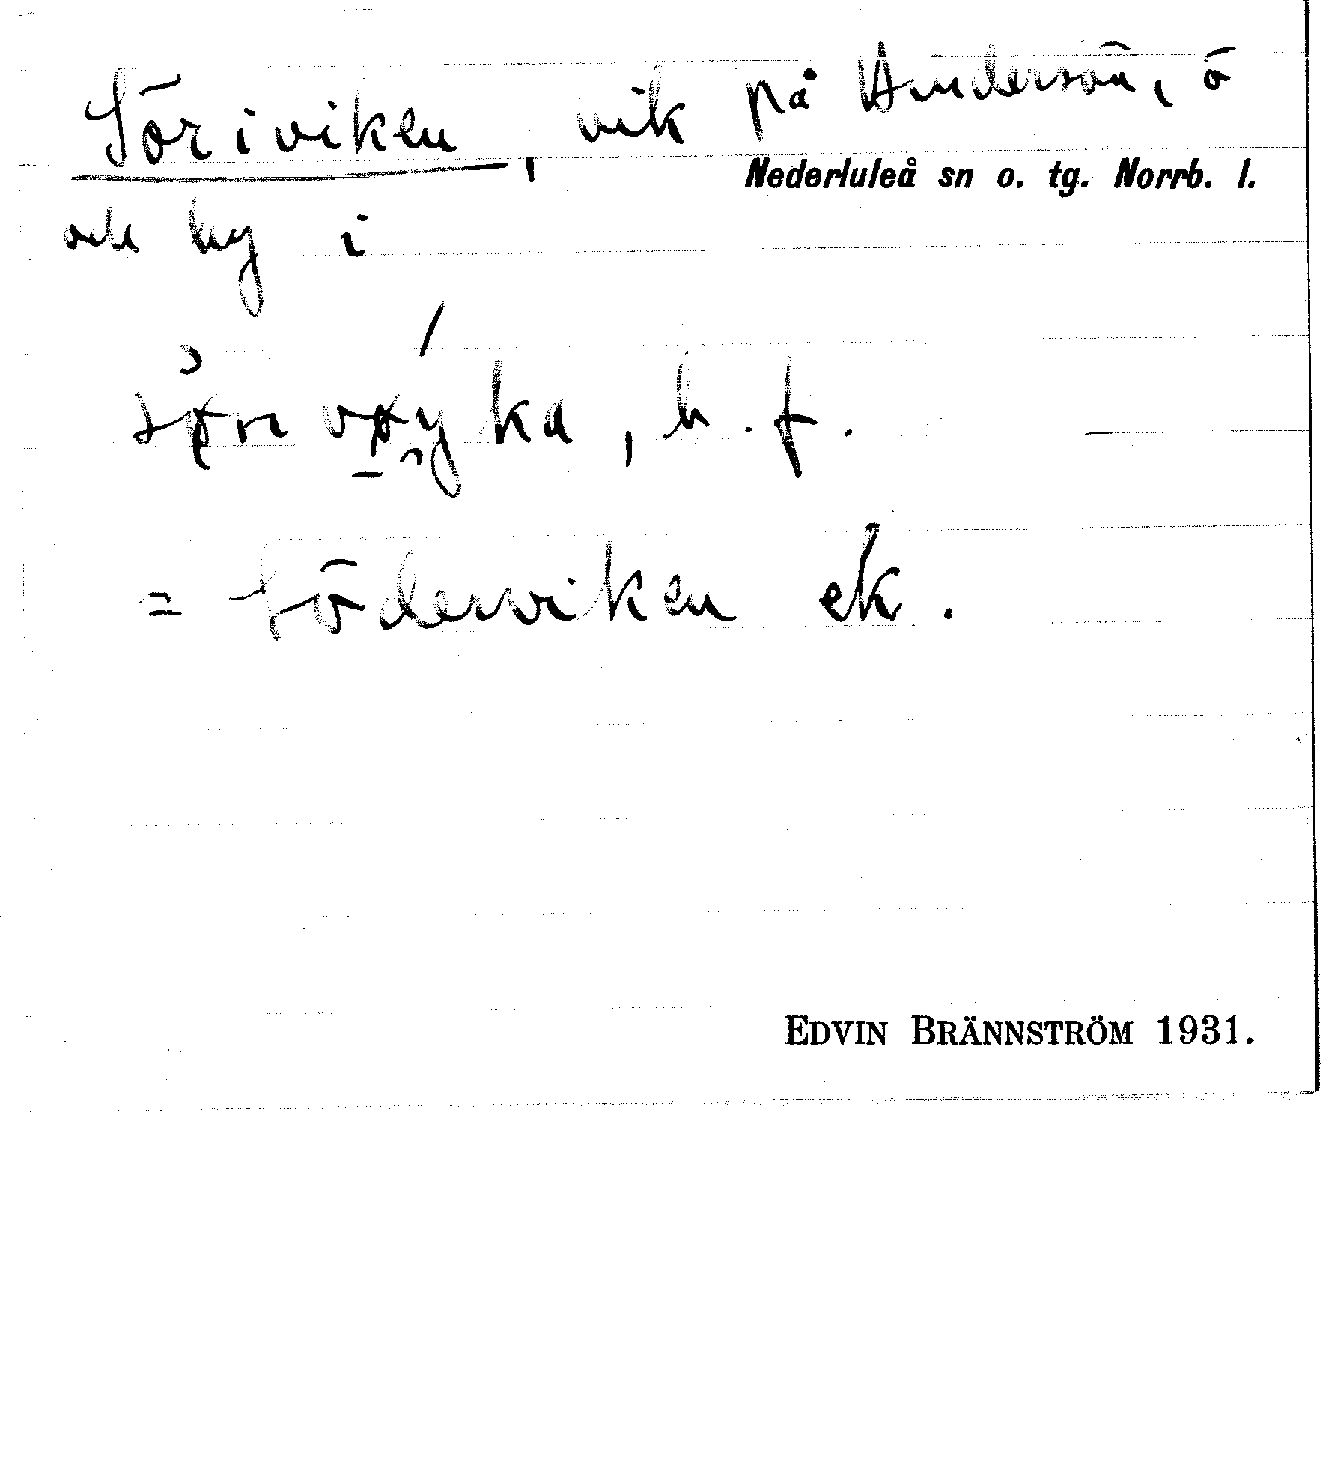 Söriviken, vik på Andersön, ö
och by i Nederluleå sn o. tg. Norrb. l.
b. f.
= Söderviken ek.
EDVIN BRÄNNSTRÖM 1931.